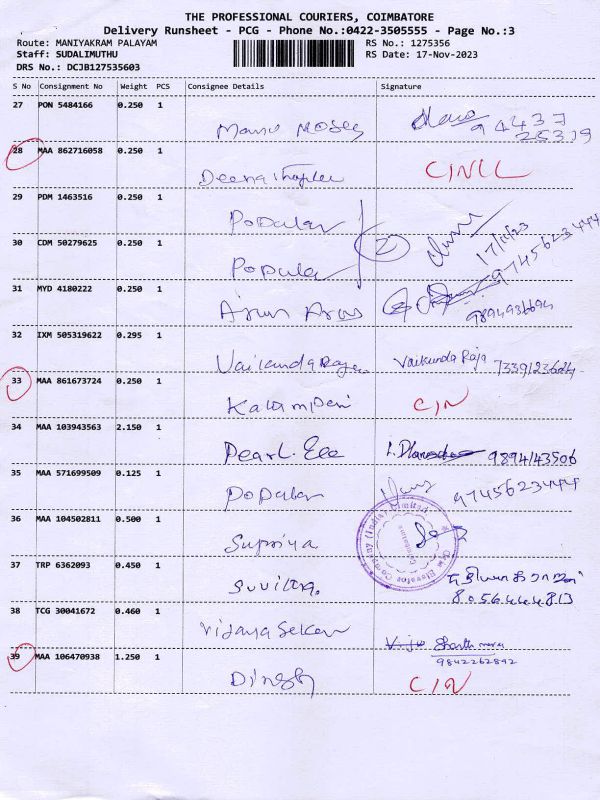 THE PROFESSIONAL COURIERS, COIMBATORE
Delivery Runsheet - PCG - Phone No.:0422-3505555 - Page No.:3
Route: MANIYAKRAM PALAYAM RS No.: 1275356
Staff: SUDALIMUTHU RS Date: 17-Nov-2023
DRS No.: DCJB127535603
S No Consignment No Weight PCS Consignee Details Signature
27 PON 5484166 0.250 1
Mano Moses 94437
25319
28 MAA 862716058 0.250 1
29 PDM 1463516 0.250 1
Popular 2 17/11/23 9745623444
30 CDM 50279625 0.250 1
Popula
31 MYD 4180222 0.250 1
Arun 9894936694
32 IXM 505319622 0.295 1
Vaikunda Raja Vaikunda Raja 7339123624
33 MAA 861673724 0.250 1
C/N
34 MAA 103943563 2.150 1
Pearl. Ele 9894143506
35 MAA 571699509 0.125 1
Popular 9745623444
36 MAA 104502811 0.500 1
Supriya
37 TRP 6362093 0.450 1
8056444813
38 TCG 30041672 0.460 1
Vijaya Sekar
9842262842
39 MAA 106470938 1.250 1
Dinesh C/N